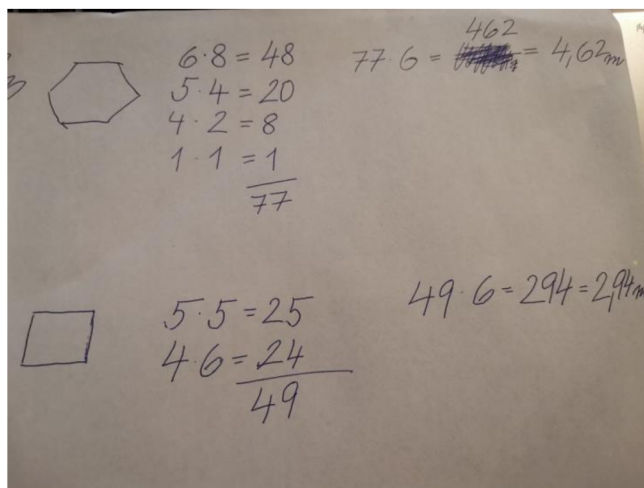 6·8 = 48
5·4 = 20
4·2 = 8
1·1 = 1
77
77·6 = 462 = 4,62m
5·5 = 25
4·6 = 24
49
49·6 = 294 = 2,94m